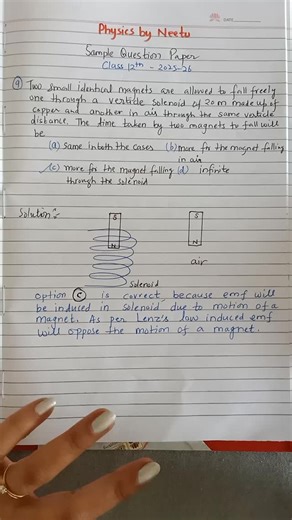 DATE
Physics by Neetu
Sample Question Paper
Class 12th - 2025-26
Q Two small identical magnets are allowed to fall freely
one through a verticle solenoid of 20m made up of
copper and another in air through the same verticle
distance. The time taken by two magnets to fall will
be
(a) same in both the cases (b) more for the magnet falling
in air
(c) more for the magnet falling (d) infinite
through the solenoid
Solution:-
S
S
N
N
air
Solenoid
option (c) is correct because emf will
be induced in solenoid due to motion of a
magnet. As per Lenz's law induced emf
will oppose the motion of a magnet.